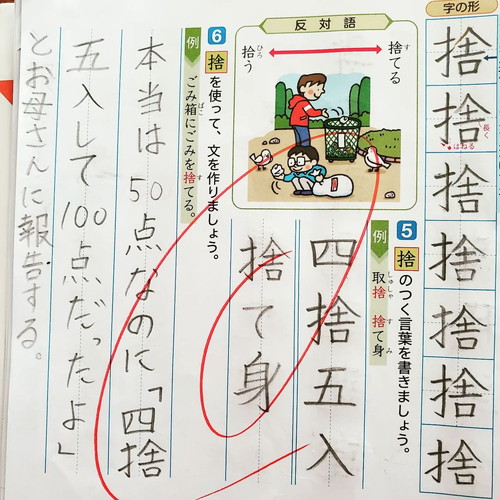 字の形
捨
捨
長く
はねる
捨
捨
捨
捨
捨
5 捨のつく言葉を書きましょう。
例 取捨 捨て身
しゅしゃ す み
四捨五入
捨て身
反対語
捨てる
す
拾う
ひろ
6 捨を使って、文を作りましょう。
例 ごみ箱にごみを捨てる。
ばこ す
本当は50点なのに「四捨
五入して100点だったよ」
とお母さんに報告する。